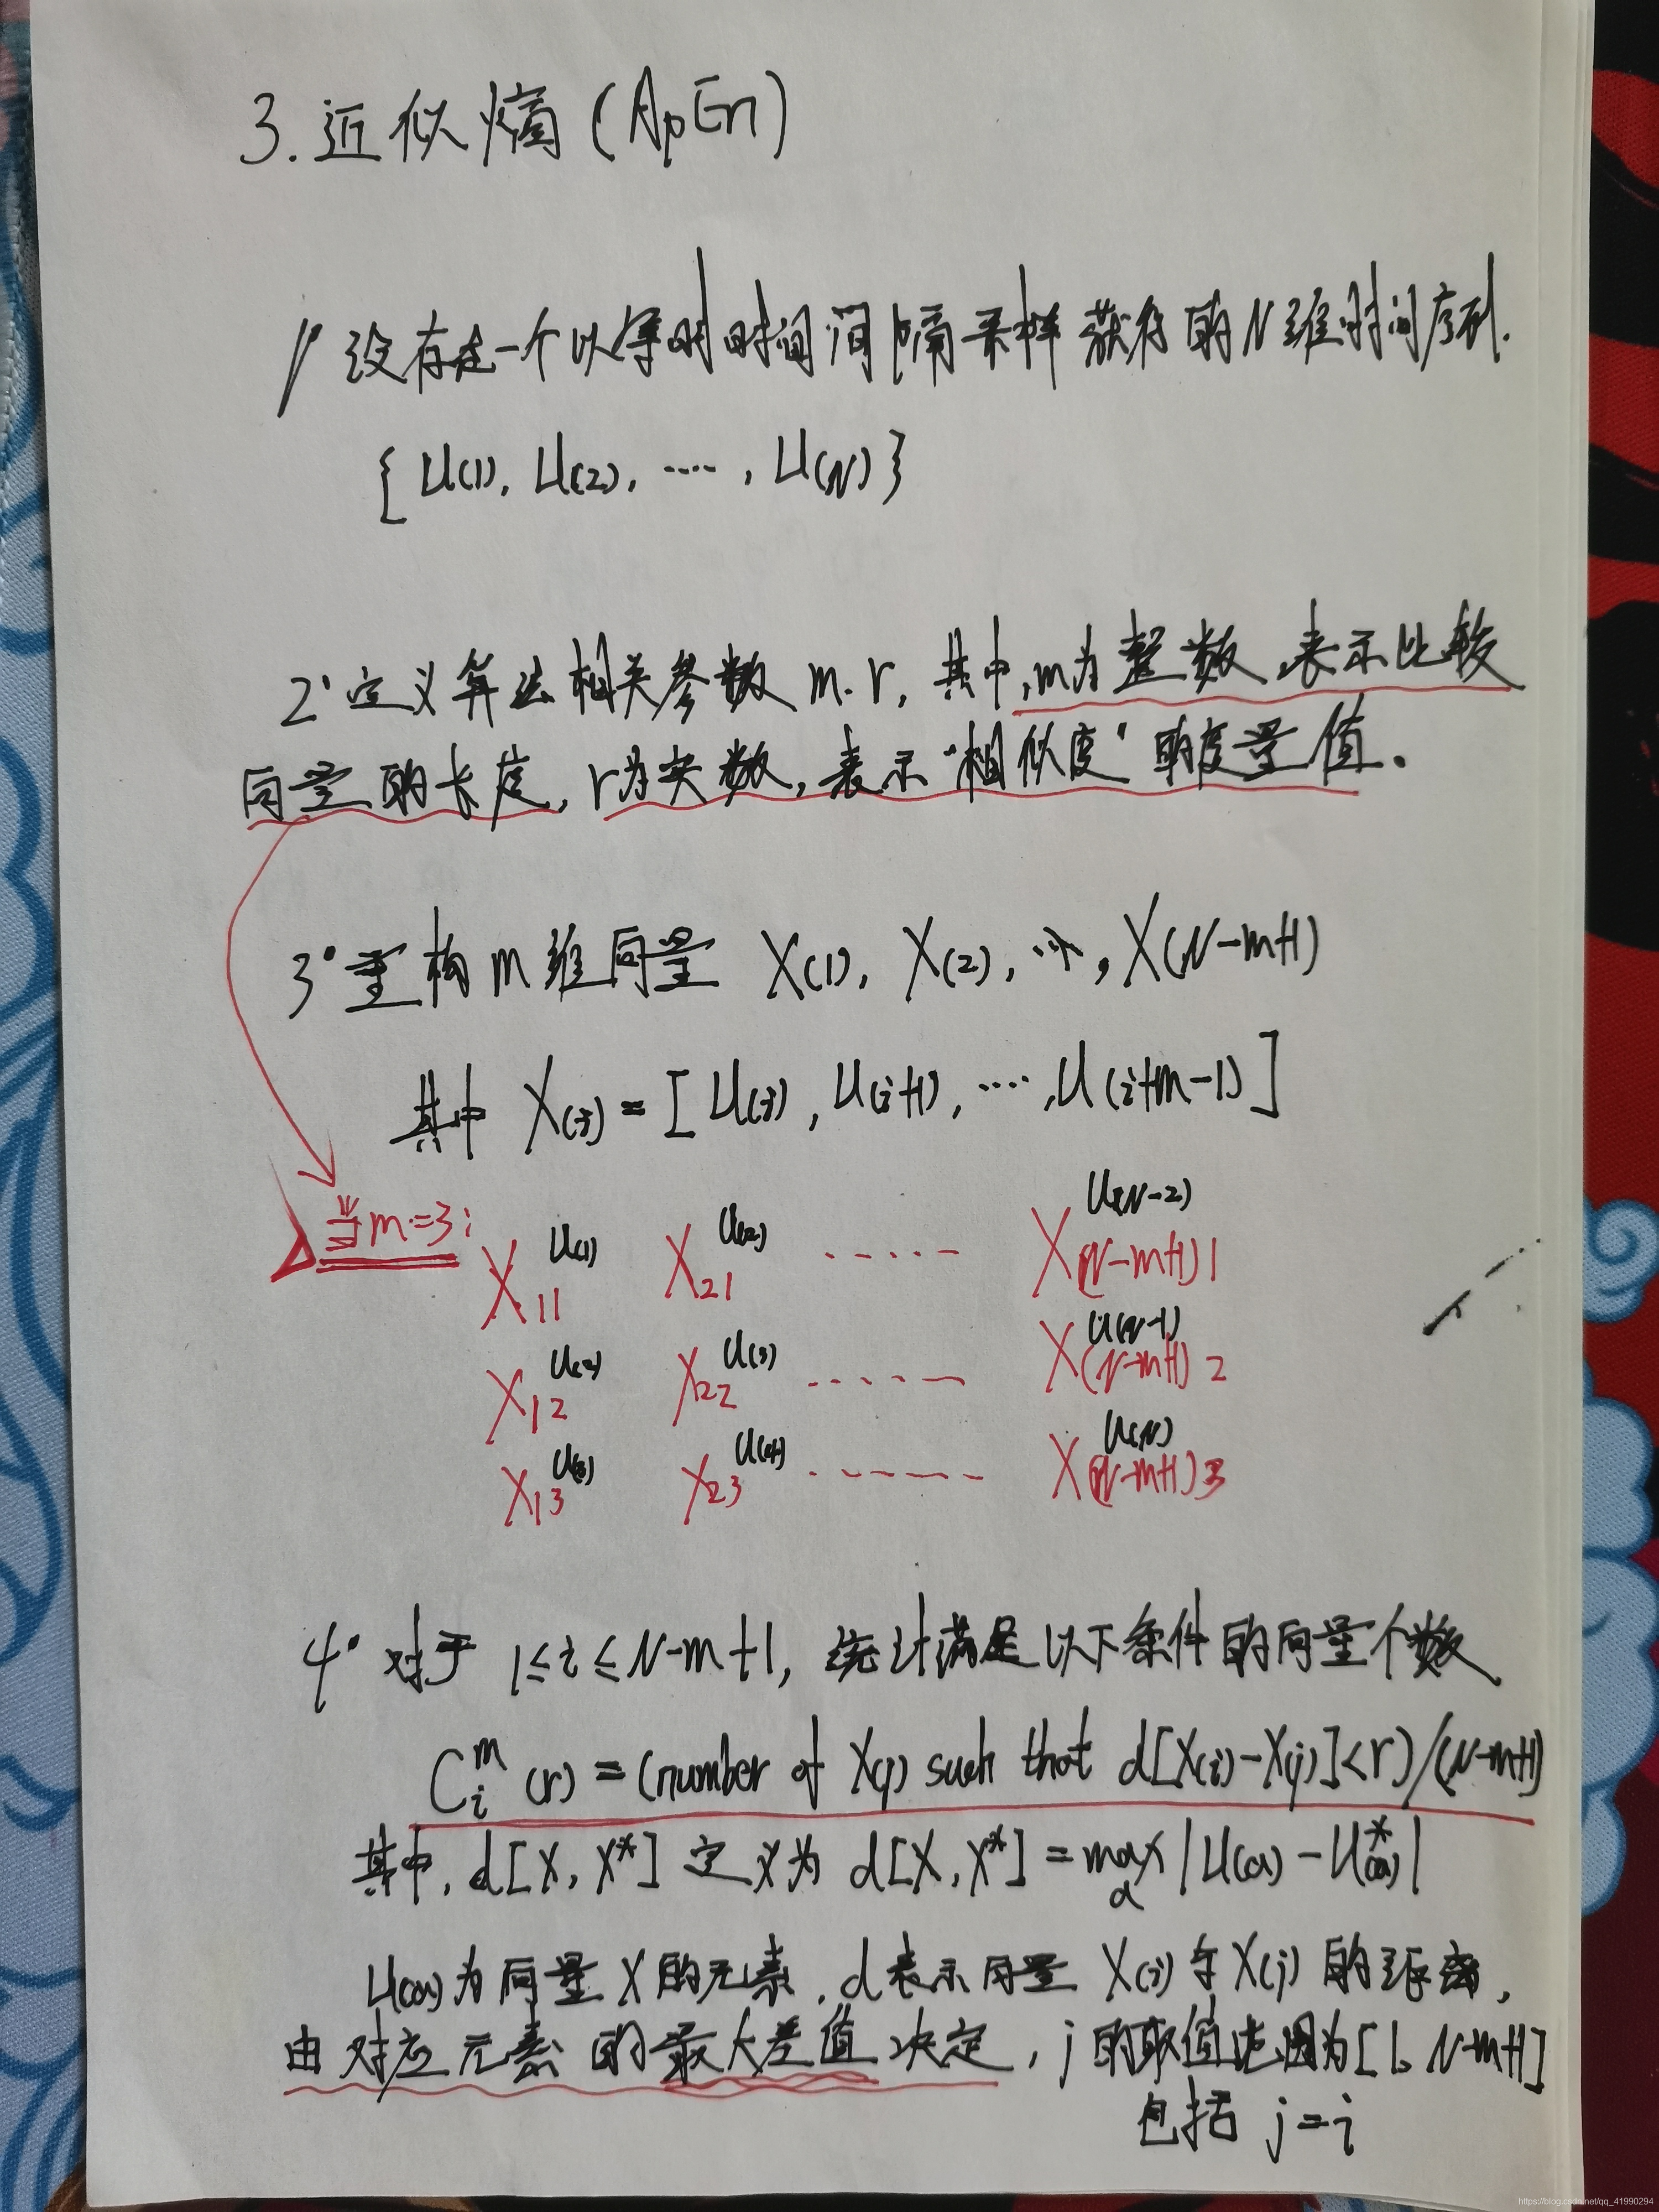 3. 近似熵 (ApEn)
1° 设存在一个以等时时间间隔采样获得的N维时间序列.
{ U(1), U(2), ····, U(N) }
2° 定义算法相关参数 m. r, 其中, m为整数, 表示比较
向量的长度, r为实数, 表示“相似度”的度量值。
3° 重构m维向量 X(1), X(2), ···, X(N-m+1)
其中 X(i) = [ U(i), U(i+1), ····, U(i+m-1) ]
当m=3:
U(1) U(2) U(N-2)
X11 X21 ····· X(N-m+1)1
U(2) U(3) U(N-1)
X12 X22 ····· X(N-m+1)2
U(3) U(4) U(N)
X13 X23 ····· X(N-m+1)3
4° 对于 1≤i≤N-m+1, 统计满足以下条件的向量个数
C_i^m (r) = (number of X(j) such that d[X(i)-X(j)]<r)/(N-m+1)
其中, d[X, X*] 定义为 d[X, X*] = max_a |U(a) - U*(a)|
U(a)为向量X的元素, d表示向量 X(i)与X(j) 的距离,
由对应元素的最大差值决定, j的取值范围为[1, N-m+1]
包括 j=i
https://blog.csdn.net/qq_41990294